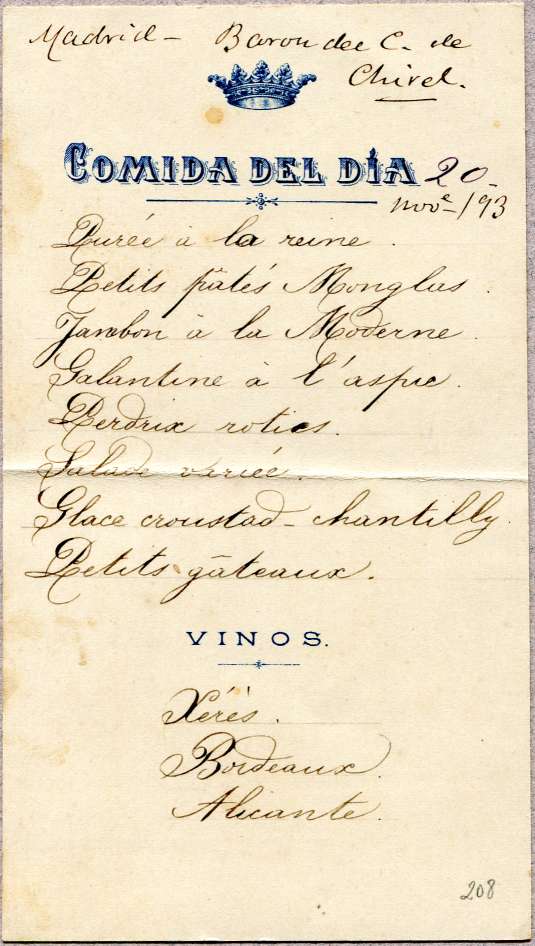 Madrid - Baron del C. de
Chirel.
COMIDA DEL DÍA 20
nov.e /93
Purée à la reine.
Petits pâtés Monglas.
Jambon à la Moderne.
Galantine à l'aspic.
Perdrix roties.
Salade variée.
Glace croustad - chantilly.
Petits gâteaux.
VINOS.
Xérès.
Bordeaux.
Alicante.
208